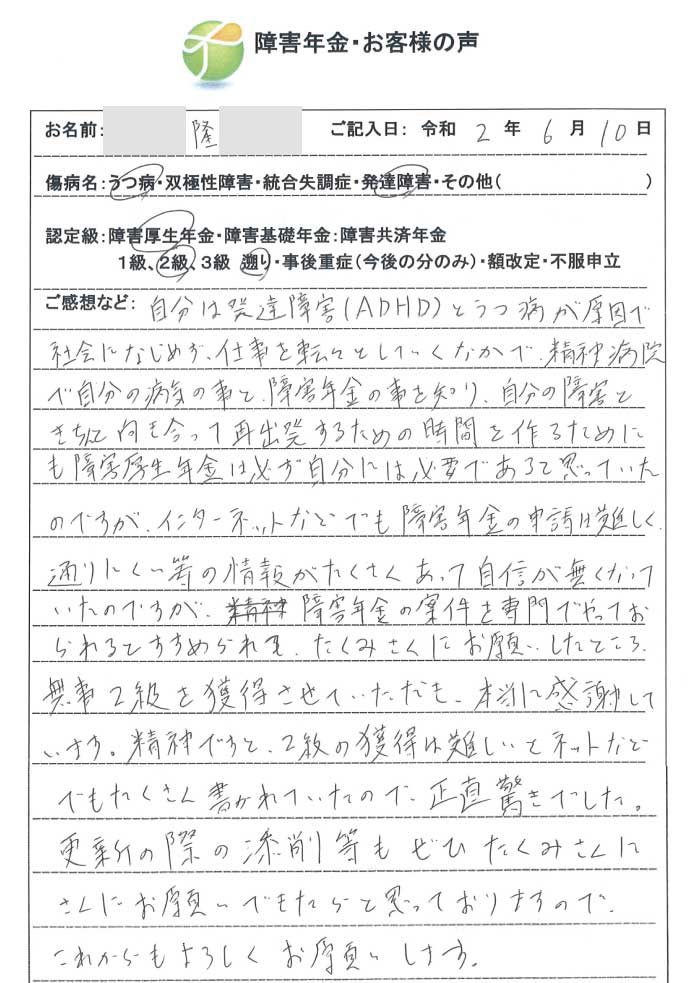 障害年金・お客様の声
お名前: 隆 ご記入日: 令和 2 年 6 月 10 日
傷病名:うつ病・双極性障害・統合失調症・発達障害・その他( )
認定級:障害厚生年金・障害基礎年金:障害共済年金
1級、2級、3級 遡り・事後重症(今後の分のみ)・額改定・不服申立
ご感想など: 自分は発達障害(ADHD)とうつ病が原因で
社会になじめず、仕事を転々としていくなかで、精神病院
で自分の病気の事と、障害年金の事を知り、自分の障害と
きちんと向き合って再出発するための時間を作るために
も障害厚生年金は必ず自分には必要であると思っていた
のですが、インターネットなどでも障害年金の申請は難しく、
通りにくい等の情報がたくさんあって自信が無くなって
いたのですが、精神障害年金の案件を専門でやってお
られるとすすめられて、たくみさんにお願いしたところ、
無事2級を獲得させていただき、本当に感謝して
います。精神ですと、2級の獲得は難しいとネットなど
でもたくさん書かれていたので、正直驚きでした。
更新の際の添削等もぜひたくみさんに
さんにお願いできたらと思っておりますので、
これからもよろしくお願いします。